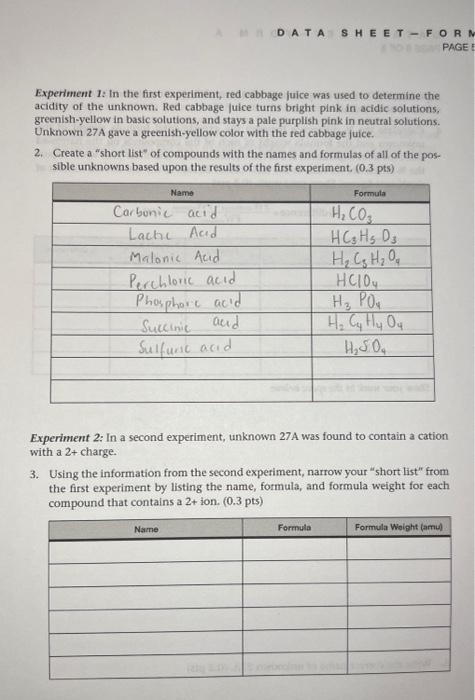 DATA SHEET – FORM
PAGE 5
Experiment 1: In the first experiment, red cabbage juice was used to determine the
acidity of the unknown. Red cabbage juice turns bright pink in acidic solutions,
greenish-yellow in basic solutions, and stays a pale purplish pink in neutral solutions.
Unknown 27A gave a greenish-yellow color with the red cabbage juice.
2. Create a "short list" of compounds with the names and formulas of all of the pos-
sible unknowns based upon the results of the first experiment. (0.3 pts)
Name Formula
Carbonic acid H₂CO₃
Lactic Acid HC₃H₅O₃
Malonic Acid H₂C₃H₂O₄
Perchloric acid HClO₄
Phosphoric acid H₃PO₄
Succinic acid H₂C₄H₄O₄
Sulfuric acid H₂SO₄
Experiment 2: In a second experiment, unknown 27A was found to contain a cation
with a 2+ charge.
3. Using the information from the second experiment, narrow your "short list" from
the first experiment by listing the name, formula, and formula weight for each
compound that contains a 2+ ion. (0.3 pts)
Name Formula Formula Weight (amu)